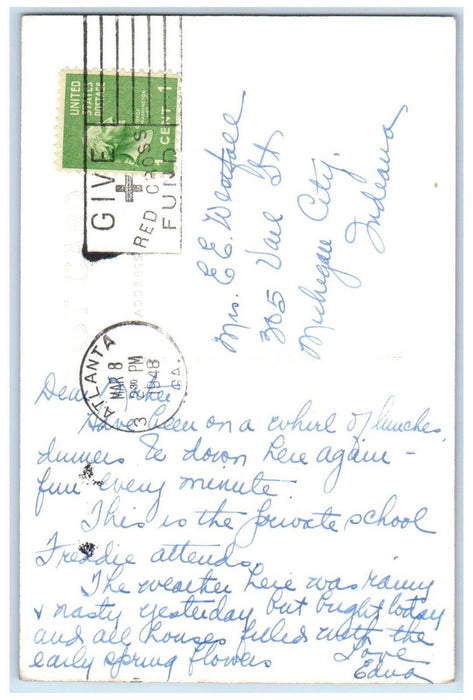 UNITED
STATES
POSTAGE
1 CENT 1
GIVE
RED CROSS
FUND
ATLANTA
MAR 8
PM
1948
GA.
ADDRESS
Mrs. E E. Westfall
305 Vail St.
Michigan City,
Indiana
Dear
Have been on a whirl of lunches,
dinners &c down here again –
fun every minute.
This is the private school
Freddie attends.
The weather here was rainy
& nasty yesterday but bright today
and all houses filled with the
early spring flowers
Love
Edna